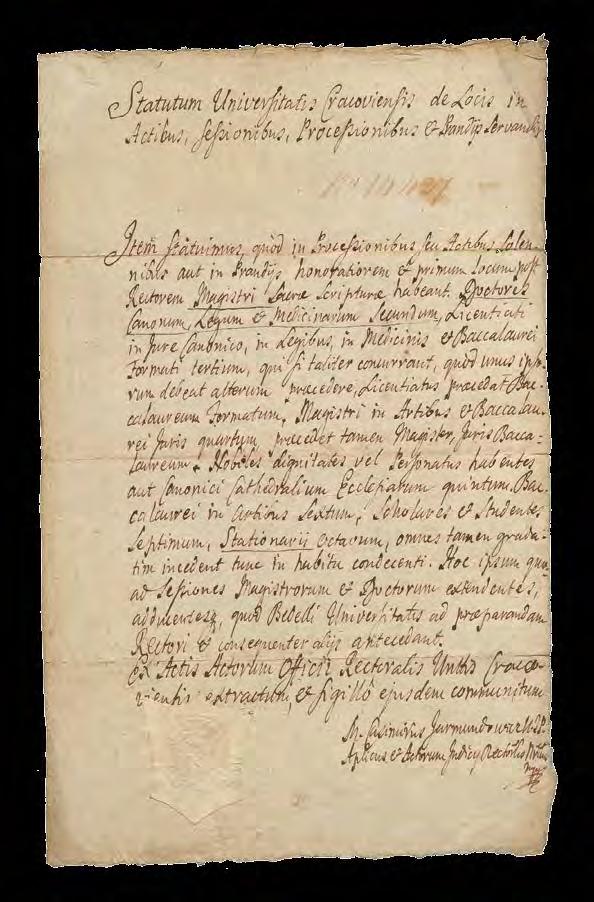 Statutum Universitatis Cracoviensis de Locis in
Actibus, sessionibus, Processionibus & Prandijs servandis
Item statuimus, quòd in Processionibus seu Actibus Solen-
nibus aut in Prandijs, honoratiorem & primum locum post
Rectorem Magistri Sacræ Scripturæ habeant. Doctores
Canonum, Legum & Medicinarum Secundum, Licentiati
in Jure Canonico, in Legibus, in Medicinis & Baccalaurei
Formati tertium, qui si taliter concurrant, quòd unus ipso-
rum debeat alterum præcedere, Licentiatus præcedat Bac-
calaureum Formatum, Magistri in Artibus & Baccalau-
rei Juris quartum, præcedet tamen Magister, Juris Bacca-
laureum. Nobiles dignitates vel Personatus habentes
aut Canonici Cathedralium Ecclesiarum quintum. Bac-
calaurei in Artibus Sextum, Scholares & Studentes
Septimum, Stationarij Octavum, omnes tamen grada-
tim incedent tunc in habitu condecenti. Hoc ipsum quoq
ad Sessiones Magistrorum & Doctorum extendentes,
adducentesq, quòd Bedelli Universitatis ad præparandam
Rectori & consequenter alijs antecedant.
Ex Actis Actorum Officii Rectoralis Unttis Craco-
viensis extractum, & sigillô ejusdem communitum
M. Casimirus Jarmundowicz
Aplicus & Actorum Judicij Rectorlis